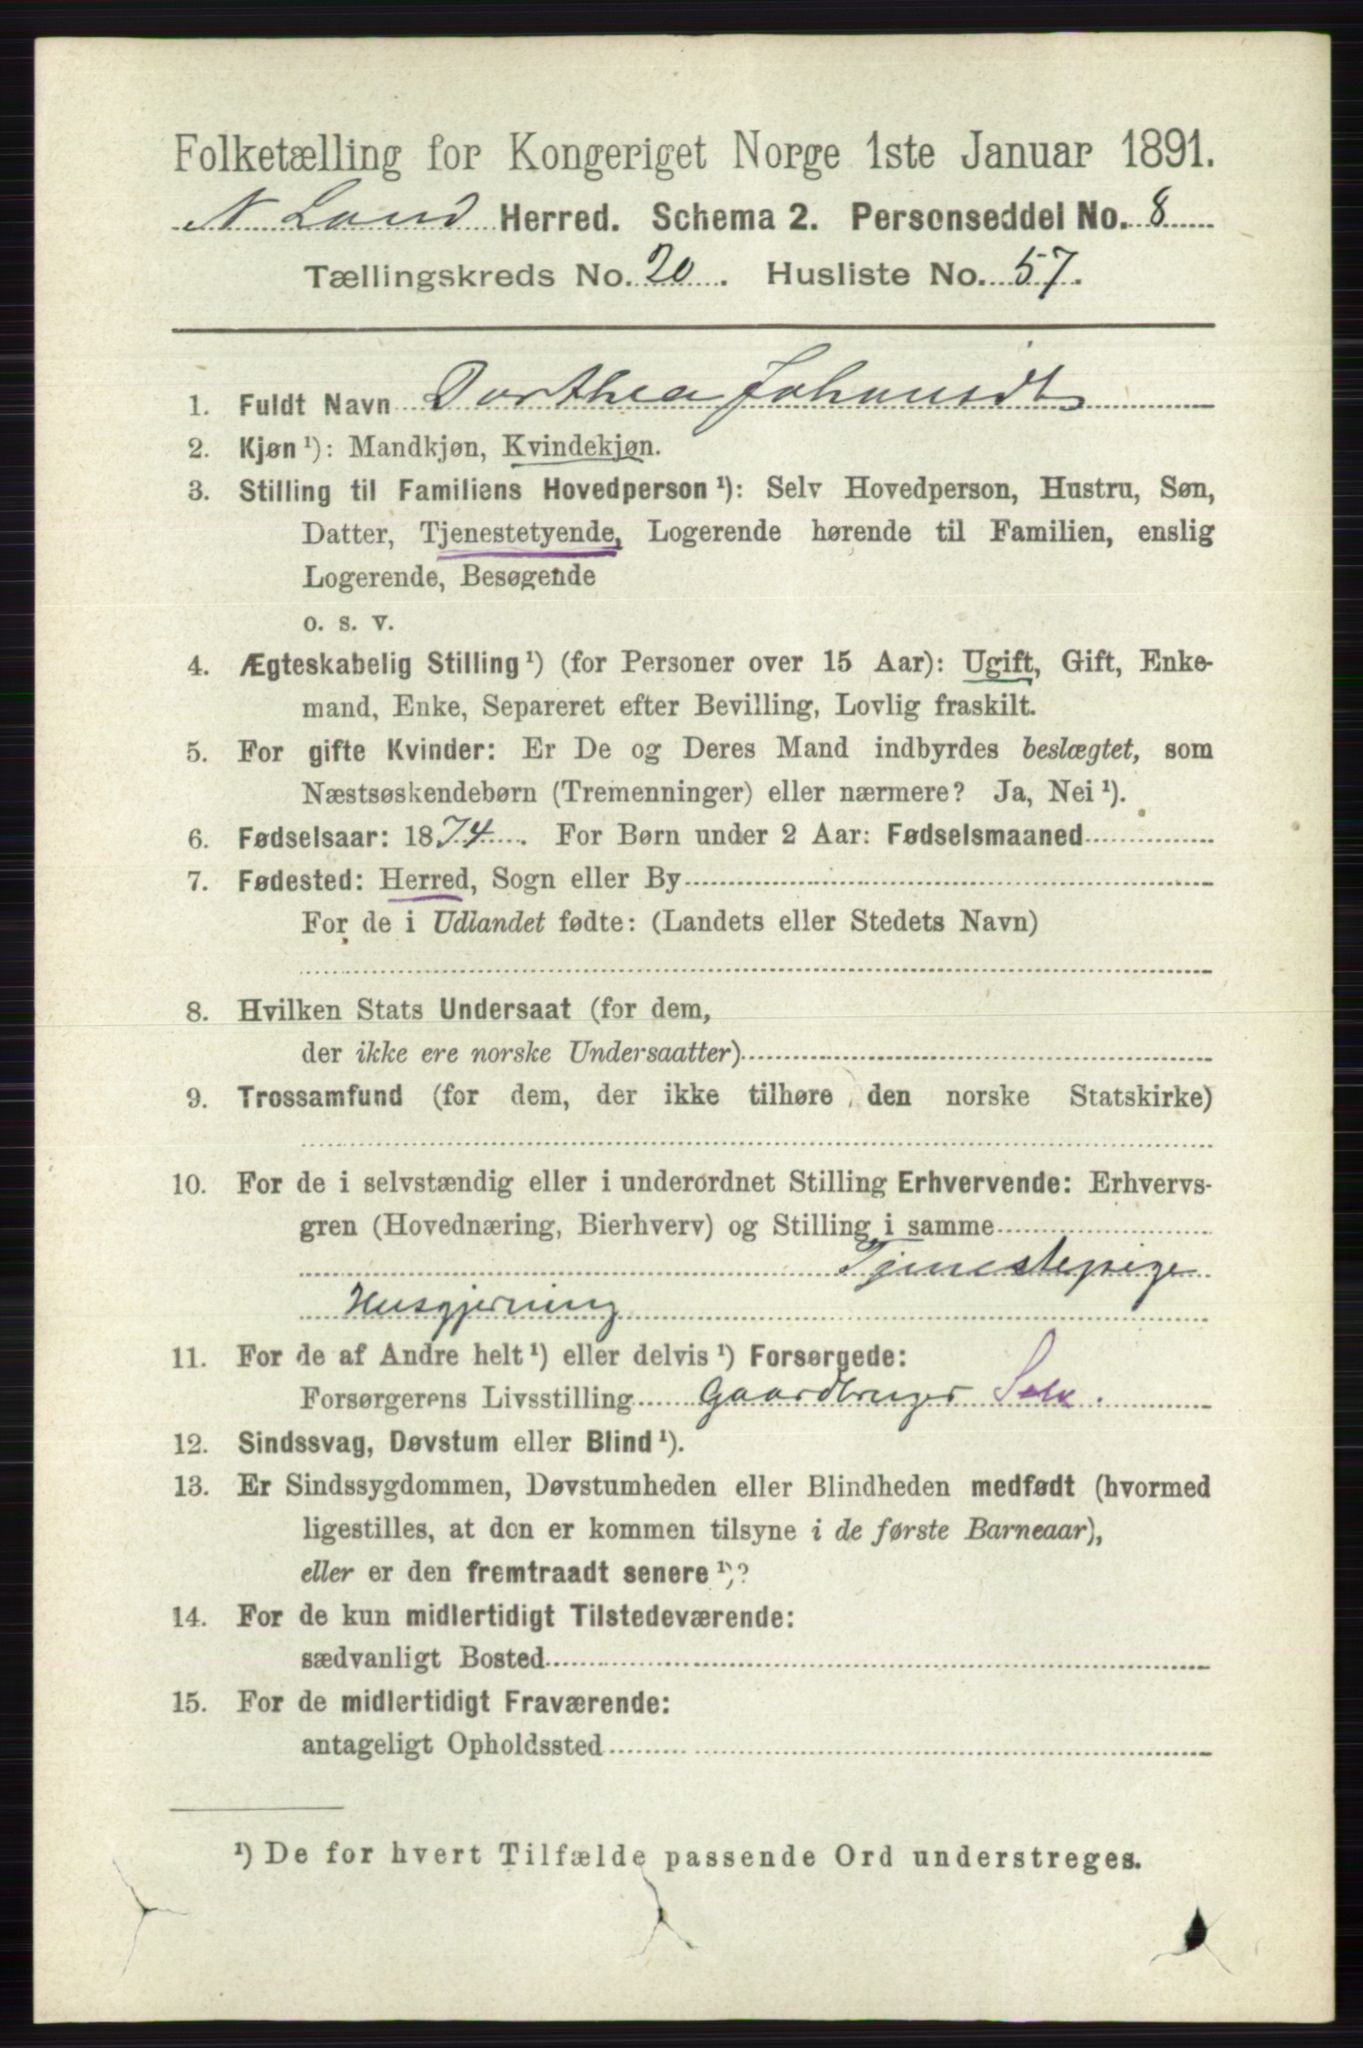 Folketælling for Kongeriget Norge 1ste Januar 1891.
N Land Herred. Schema 2. Personseddel No. 8
Tællingskreds No. 20. Husliste No. 57.
1. Fuldt Navn Dorthea Johansdt
2. Kjøn ¹): Mandkjøn, Kvindekjøn.
3. Stilling til Familiens Hovedperson ¹): Selv Hovedperson, Hustru, Søn,
Datter, Tjenestetyende, Logerende hørende til Familien, enslig
Logerende, Besøgende
o. s. v.
4. Ægteskabelig Stilling ¹) (for Personer over 15 Aar): Ugift, Gift, Enke-
mand, Enke, Separeret efter Bevilling, Lovlig fraskilt.
5. For gifte Kvinder: Er De og Deres Mand indbyrdes beslægtet, som
Næstsøskendebørn (Tremenninger) eller nærmere? Ja, Nei ¹).
6. Fødselsaar: 1874. For Børn under 2 Aar: Fødselsmaaned
7. Fødested: Herred, Sogn eller By
For de i Udlandet fødte: (Landets eller Stedets Navn)
8. Hvilken Stats Undersaat (for dem,
der ikke ere norske Undersaatter)
9. Trossamfund (for dem, der ikke tilhøre den norske Statskirke)
10. For de i selvstændig eller i underordnet Stilling Erhvervende: Erhvervs-
gren (Hovednæring, Bierhverv) og Stilling i samme
Tjenestepige
Husgjerning
11. For de af Andre helt ¹) eller delvis ¹) Forsørgede:
Forsørgerens Livsstilling Gaardbruger Selv.
12. Sindssvag, Døvstum eller Blind ¹).
13. Er Sindssygdommen, Døvstumheden eller Blindheden medfødt (hvormed
ligestilles, at den er kommen tilsyne i de første Barneaar),
eller er den fremtraadt senere ¹)?
14. For de kun midlertidigt Tilstedeværende:
sædvanligt Bosted
15. For de midlertidigt Fraværende:
antageligt Opholdssted
¹) De for hvert Tilfælde passende Ord understreges.